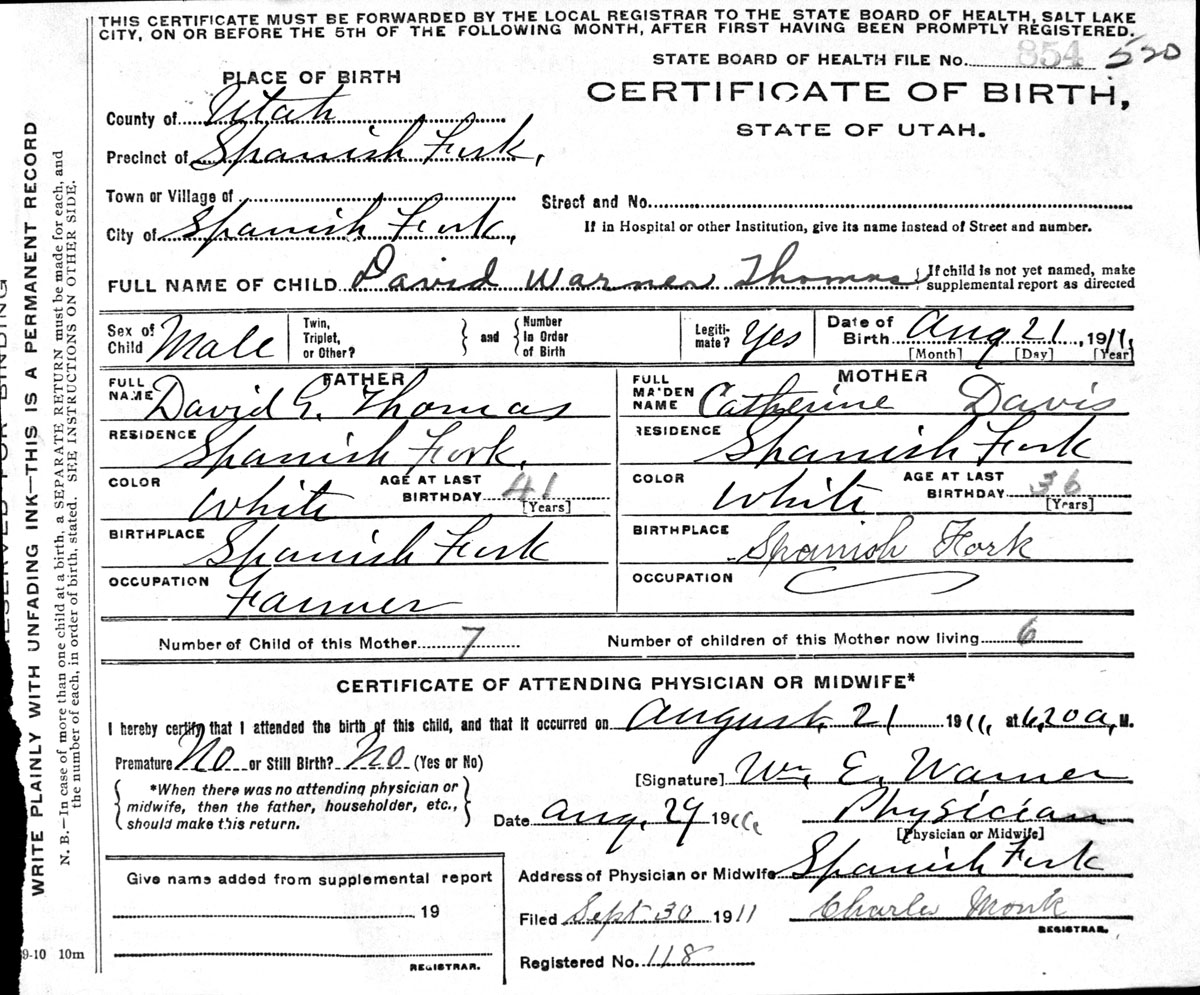 THIS CERTIFICATE MUST BE FORWARDED BY THE LOCAL REGISTRAR TO THE STATE BOARD OF HEALTH, SALT LAKE
CITY, ON OR BEFORE THE 5TH OF THE FOLLOWING MONTH, AFTER FIRST HAVING BEEN PROMPTLY REGISTERED.
STATE BOARD OF HEALTH FILE No. 854 520
PLACE OF BIRTH
CERTIFICATE OF BIRTH,
STATE OF UTAH.
County of Utah
Precinct of Spanish Fork,
Town or Village of
Street and No.
City of Spanish Fork,
If in Hospital or other Institution, give its name instead of Street and number.
FULL NAME OF CHILD David Warner Thomas { If child is not yet named, make
supplemental report as directed
Sex of Child Male
Twin, Triplet, or Other? } and { Number in Order of Birth
Legiti-mate? Yes
Date of Birth Aug 21, 1911,
[Month] [Day] [Year]
FATHER
FULL NAME David G. Thomas
RESIDENCE Spanish Fork,
COLOR White AGE AT LAST BIRTHDAY 41
[Years]
BIRTHPLACE Spanish Fork
OCCUPATION Farmer
MOTHER
FULL MAIDEN NAME Catherine Davis
RESIDENCE Spanish Fork
COLOR White AGE AT LAST BIRTHDAY 36
[Years]
BIRTHPLACE Spanish Fork
OCCUPATION
Number of Child of this Mother 7 Number of children of this Mother now living 6
CERTIFICATE OF ATTENDING PHYSICIAN OR MIDWIFE*
I hereby certify that I attended the birth of this child, and that it occurred on August, 21 1911, at 6,20 a, M.
Premature No or Still Birth? No (Yes or No)
[Signature] Wm. E. Warner
*When there was no attending physician or
midwife, then the father, householder, etc.,
should make this return.
Date Aug, 29 1911, Physician
[Physician or Midwife]
Address of Physician or Midwife Spanish Fork
Give name added from supplemental report
19
REGISTRAR.
Filed Sept 30 1911 Charles Monk
REGISTRAR.
Registered No. 118
9-10 10m
RESERVED FOR BINDING
WRITE PLAINLY WITH UNFADING INK—THIS IS A PERMANENT RECORD
N. B.—In case of more than one child at a birth, a SEPARATE RETURN must be made for each, and
the number of each, in order of birth, stated. SEE INSTRUCTIONS ON OTHER SIDE.